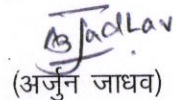 Jadhav
(अर्जुन जाधव)